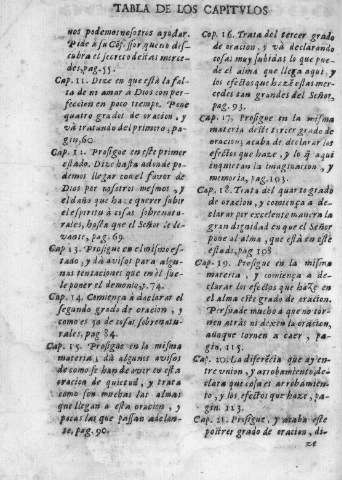 TABLA DE LOS CAPITVLOS
nos podemos nosotros ayudar.
Pide à su Cõfessor que no dis-
cubra el secreto destas merce-
des, pag. 55.
Cap. 11. Dize en que està la fal-
ta de no amar à Dios con per-
feccion en poco tiempo. Pone
quatro grados de oracion, y
và tratando del primero, pa-
gin. 60
Cap. 12. Prosigue en este primer
estado. Dize hasta adonde po-
demos llegar con el favor de
Dios por nosotros mesmos, y
el daño que haze querer subir
el espiritu à cosas sobrenatu-
rales, hasta que el Señor le le-
vante, pag. 69.
Cap 13. Prosigue en el mismo es-
tado, y dà avisos para algu-
nas tentaciones que en èl sue-
le poner el demonio, p. 74.
Cap. 14. Comiença à declarar el
segundo grado de oracion, y
como es ya de cosas sobrenatu-
rales, pag 84.
Cap. 15. Prosigue en la misma
materia, dà algunos avisos
de como se han de aver en esta
oracion de quietud, y trata
como son muchas las almas
que llegan a esta oracion, y
pocas las que passan adelan-
te, pag. 90.
Cap. 16. Trata del tercer grado
de oracion, y và declarando
cosas muy subidas lo que pue-
de el alma que llega aqui, y
los efectos que haze estas mer-
cedes tan grandes del Señor,
pag. 93.
Cap. 17. Prosigue en la misma
materia deste tercer grado de
oracion, acaba de declarar los
efectos que haze, y lo q̃ aqui
impide la imaginacion, y
memoria, pag. 103.
Cap. 18. Trata del quarto grado
de oracion, y comiença a de-
clarar por excelente manera la
gran dignidad en que el Señor
pone al alma, que està en este
estado, pag 108
Cap. 19. Prosigue en la misma
materia, y comiença à de-
clarar los efectos que haze en
el alma este grado de oracion.
Persuade mucho a que no tor-
nen atràs ni dexen la oracion,
aunque tornen a caer, pa-
gin. 113.
Cap. 20. La diferẽcia que ay en-
tre vnion, y arrobamiento, de-
clara què cosa es arrobamien-
to, y los efectos que haze, pa-
gin. 113.
Cap. 21. Prosigue, y acaba este
postrer grado de oracion, di-
ze